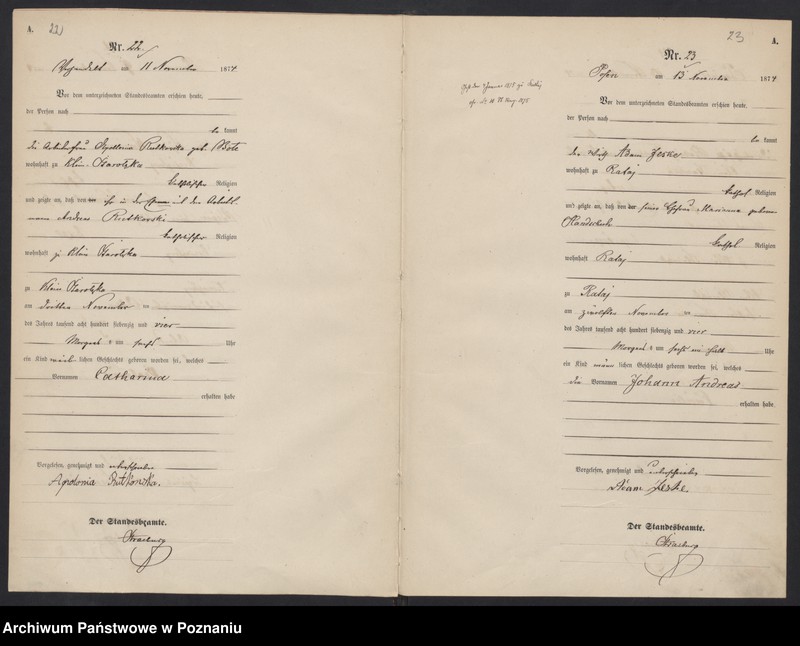 A.
22
Nr. 22.
am 11 November 1874
Vor dem unterzeichneten Standesbeamten erschien heute,
der Person nach
be kannt
die Apollonia Rutkowska geb.
wohnhaft zu Klein-Starolęka
katholischer Religion
und zeigte an, daß von
mann Andreas Rutkowski
katholischer Religion
wohnhaft zu Klein Starolęka
zu Klein Starolęka
am dritten November
des Jahres tausend acht hundert siebenzig und vier
Morgens um sechs Uhr
ein Kind lichen Geschlechts geboren worden sei, welches
Vornamen Catharina
erhalten habe
Vorgelesen, genehmigt und unterschrieben
Apolonia Rutkowska.
Der Standesbeamte.
23
A.
Nr. 23
Posen am 13 November 1874
Vor dem unterzeichneten Standesbeamten erschien heute,
der Person nach
be kannt
der Wirth Adam Jeske
wohnhaft zu Rataj
kathol. Religion
und zeigte an, daß von seiner Ehefrau Marianna geborene
kathol Religion
wohnhaft Rataj
zu Rataj
am zwölften November
des Jahres tausend acht hundert siebenzig und vier
Morgens um sechs ein halb Uhr
ein Kind männ lichen Geschlechts geboren worden sei, welches
die Vornamen Johann Andreas
erhalten habe.
Vorgelesen, genehmigt und unterschrieben
Adam Jeske.
Der Standesbeamte.
Archiwum Państwowe w Poznaniu